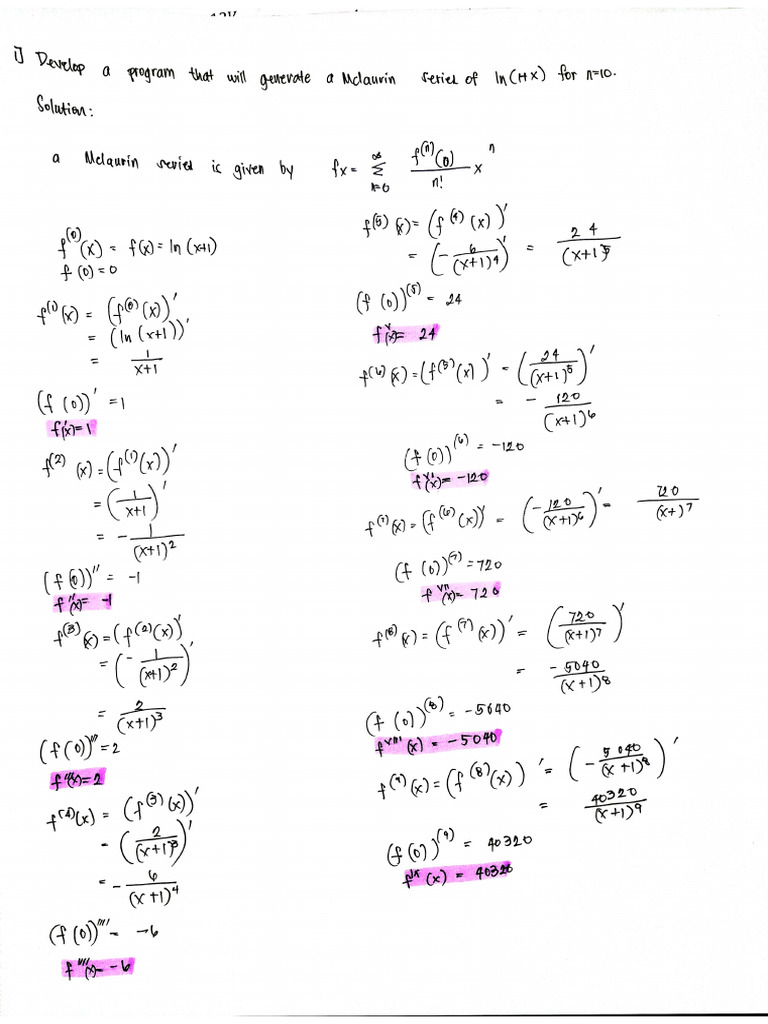 1) Develop a program that will generate a Mclaurin series of ln(1+x) for n=10.
Solution:
a Mclaurin series is given by fx = ∞ Σ n=0 f^(n)(0) / n! x^n
f^(0)(x) = f(x) = ln(x+1)
f(0) = 0
f^(1)(x) = (f^(0)(x))'
= (ln(x+1))'
= 1 / x+1
(f(0))' = 1
f'(x) = 1
f^(2)(x) = (f^(1)(x))'
= (1 / x+1)'
= - 1 / (x+1)^2
(f(0))'' = -1
f''(x) = -1
f^(3)(x) = (f^(2)(x))'
= (- 1 / (x+1)^2)'
= 2 / (x+1)^3
(f(0))''' = 2
f'''(x) = 2
f^(4)(x) = (f^(3)(x))'
= (2 / (x+1)^3)'
= - 6 / (x+1)^4
(f(0))'''' = -6
f''''(x) = -6
f^(5)(x) = (f^(4)(x))'
= (- 6 / (x+1)^4)' = 24 / (x+1)^5
(f(0))^(5) = 24
f^v(x) = 24
f^(6)(x) = (f^(5)(x))' = (24 / (x+1)^5)'
= - 120 / (x+1)^6
(f(0))^(6) = -120
f^VI(x) = -120
f^(7)(x) = (f^(6)(x))' = (- 120 / (x+1)^6)' = 720 / (x+)^7
(f(0))^(7) = 720
f^VII(x) = 720
f^(8)(x) = (f^(7)(x))' = (720 / (x+1)^7)'
= -5040 / (x+1)^8
(f(0))^(8) = -5040
f^VIII(x) = -5040
f^(9)(x) = (f^(8)(x))' = (- 5040 / (x+1)^8)'
= 40320 / (x+1)^9
(f(0))^(9) = 40320
f^IX(x) = 40320